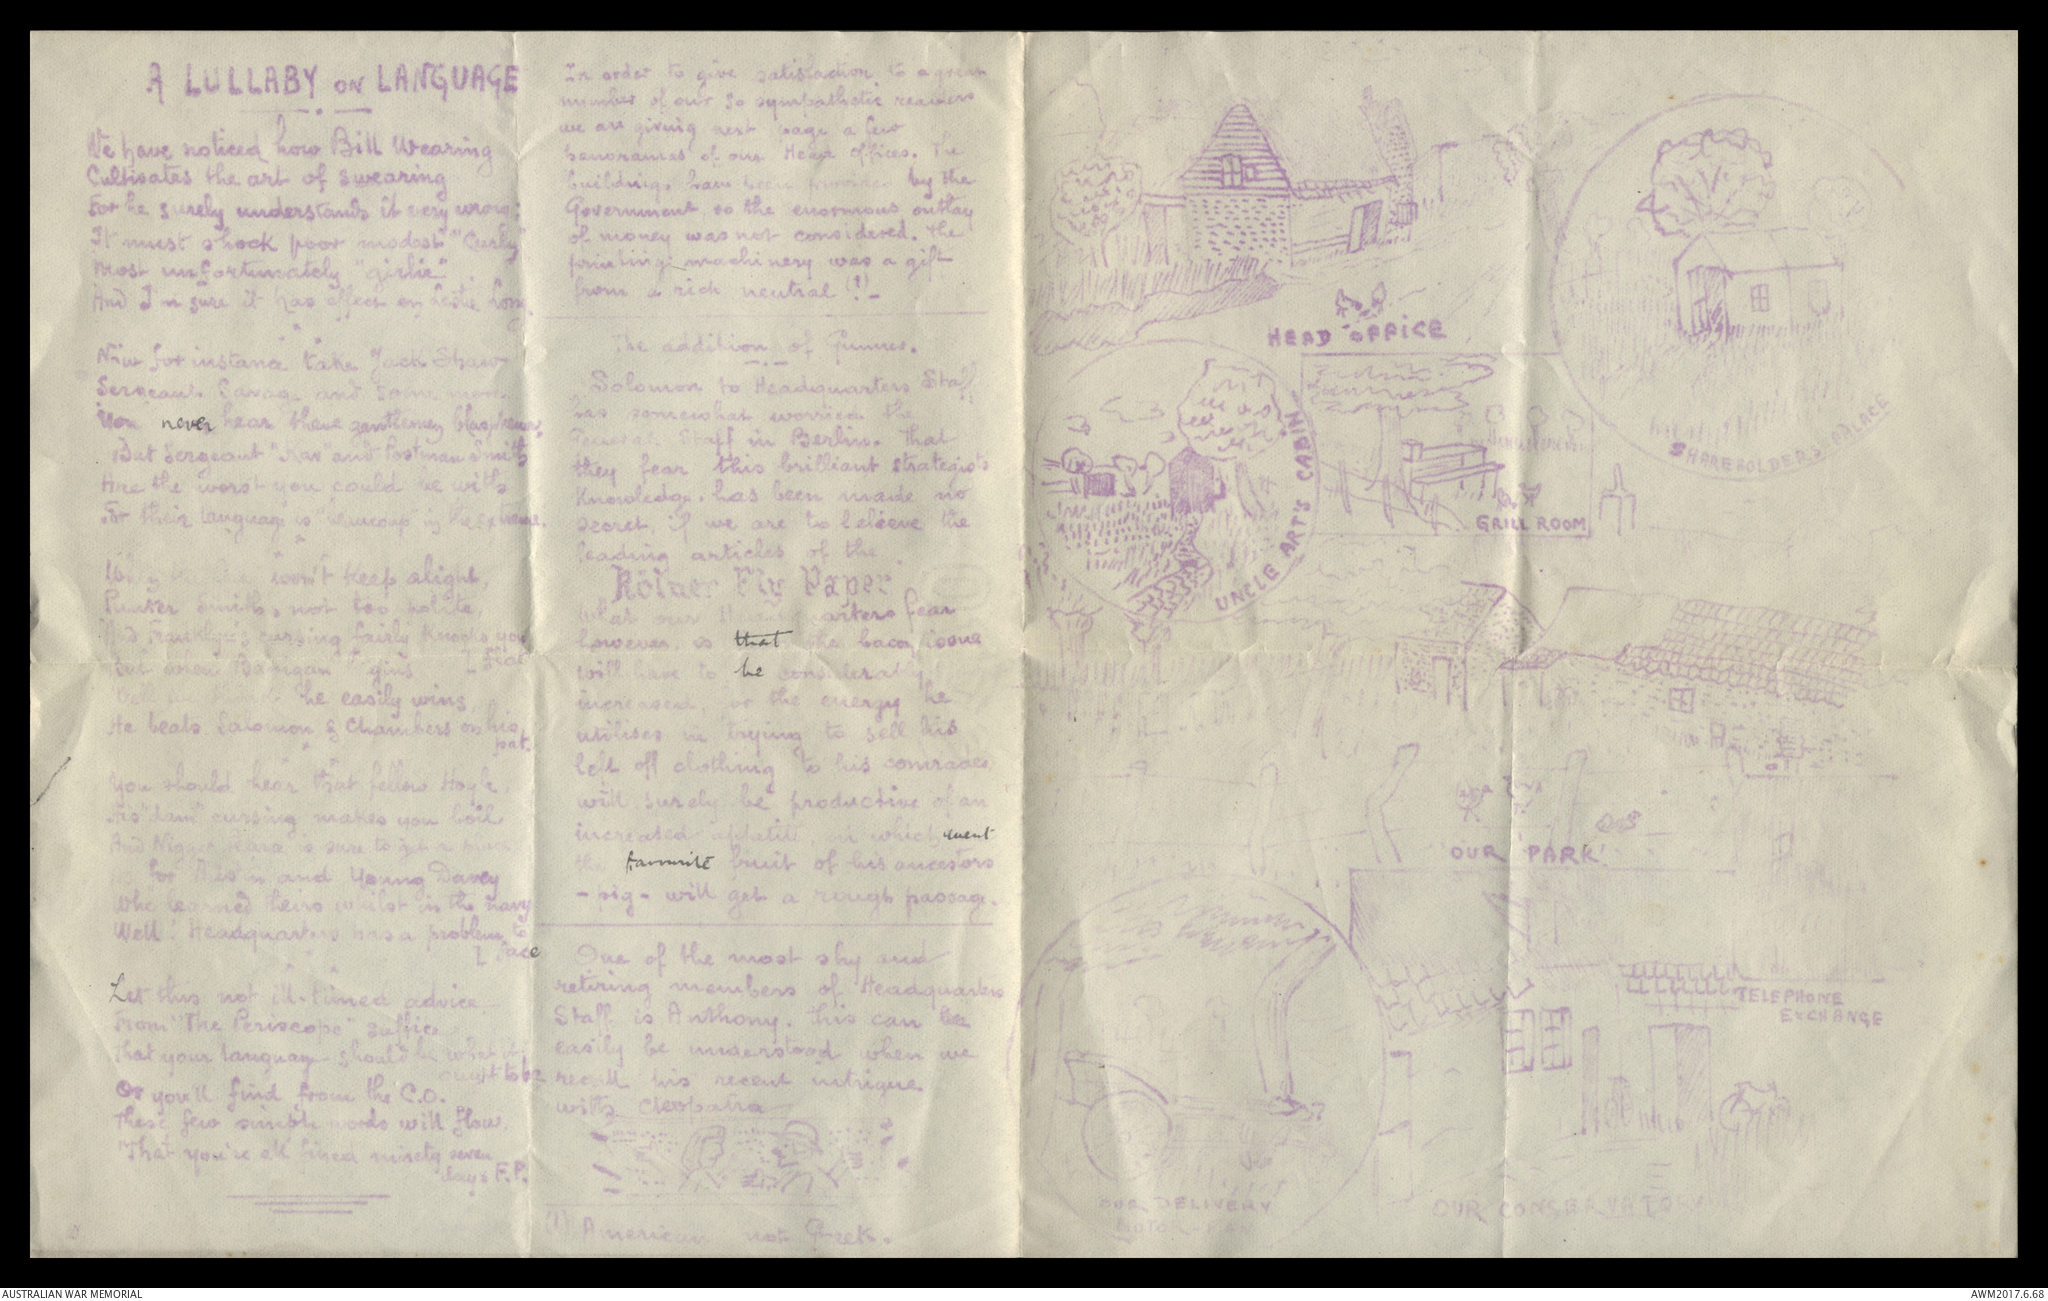 A LULLABY ON LANGUAGE
We have noticed how Bill Wearing
Cultivates the art of swearing
For he surely understands it very wrong;
It must shock poor modest "Curly"
Most unfortunately "girlie"
And I'm sure it has effect on Leslie Long.
Now for instance take Jack Shaw
Sergeant Savage and some more
You never hear these gentlemen blaspheme.
But Sergeant and Postman Smith
Are the worst you could be with
For their language is "beaucoup" in the extreme.
won't keep alight,
Smith's not too polite,
And Francklyn's cursing fairly knocks you
flat
But when 'gins
he easily wins,
He beats Salomon & Chambers on his
pat.
You should hear that fellow Hoyle,
His "dam" cursing makes you boil
And is sure to get a
For and Young Davey
Who learned theirs whilst in the navy
Well! Headquarters has a problem to
face
Let this not ill-timed advice
From "The Periscope" suffice
That your language should be what it
ought to be
Or you'll find from the C.O.
These few simple words will flow,
"That you're all fined ninety seven
days F.P.
In order to give satisfaction to a great
number of our so sympathetic readers
we are giving next page a few
panoramas of our Head Offices. The
buildings have been provided by the
Government, so the enormous outlay
of money was not considered. The
printing machinery was a gift
from a rich neutral (1)_
The addition of Gunner.
Solomon to Headquarters Staff
has somewhat worried the
General Staff in Berlin. That
they fear this brilliant strategist's
knowledge, has been made no
secret, if we are to believe the
leading articles of the
Kölner Fly Paper
What our Headquarters fear
however, is that the bacon issue
will have to be considerably
increased, as the energy he
utilises in trying to sell his
left off clothing to his comrades
will surely be productive of an
increased appetite, in which event
the favourite fruit of his ancestors
- pig - will get a rough passage.
One of the most shy and
retiring members of Headquarters
Staff is Anthony. This can be
easily be understood when we
recall his recent intrigue
with Cleopatra
(1) American not Greek.
HEAD OFFICE
SHAREHOLDERS PALACE
UNCLE ART'S CABIN
GRILL ROOM
OUR PARK
TELEPHONE
EXCHANGE
OUR DELIVERY
MOTOR-VAN
OUR CONSERVATO
AUSTRALIAN WAR MEMORIAL
AWM2017.6.68